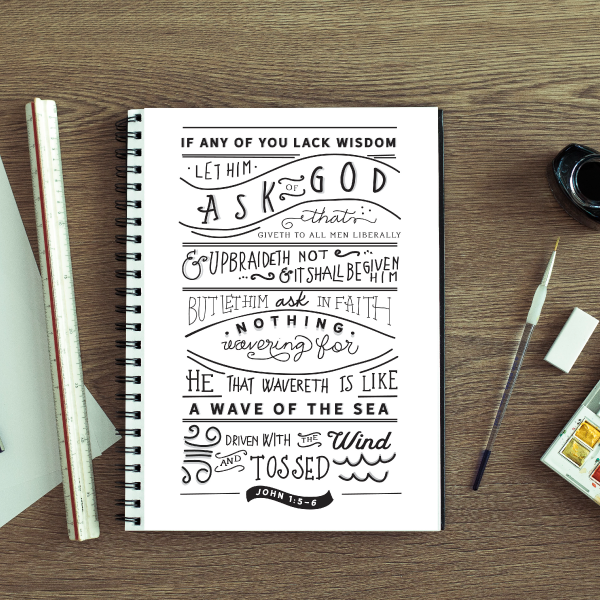 IF ANY OF YOU LACK WISDOM
LET HIM
ASK OF GOD
that
GIVETH TO ALL MEN LIBERALLY
& UPBRAIDETH NOT
& IT SHALL BE GIVEN HIM
BUT LET HIM ask IN FAITH
NOTHING
wavering for
HE THAT WAVERETH IS LIKE
A WAVE OF THE SEA
DRIVEN WITH THE Wind
AND TOSSED
JOHN 1:5-6